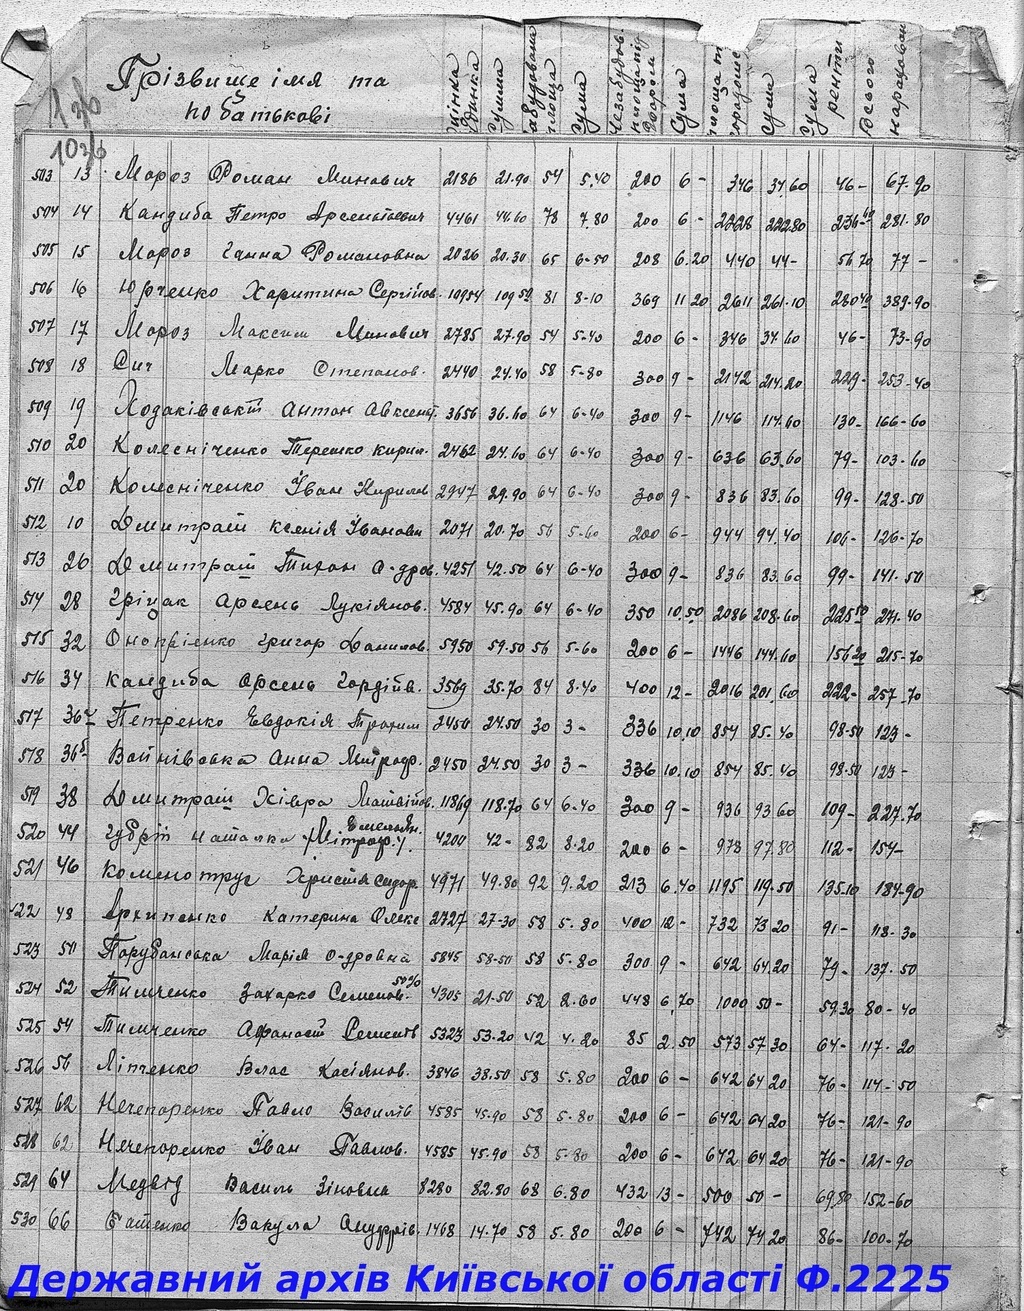 136
1036
Прізвище імя та
по батькові
оцінка
будинка
сумма
забудована
площа
сума
Незабудов.
площа під
двором
Сума
площа п
городом
сума
сума
ренти
Всього
нараховано
503 13 Мороз Роман Минович 2186 21.90 54 5.40 200 6- 346 34.60 46- 67.90
504 14 Кандиба Петро Арсентієвич 4461 44.60 78 7.80 200 6- 2228 222.80 236.60 281.80
505 15 Мороз Ганна Романовна 2026 20.30 65 6-50 208 6.20 440 44- 56 70 77-
506 16 Юрченко Харитина Сергійов. 10954 109 50 81 8-10 369 11 20 2611 261.10 280 40 389-90
507 17 Мороз Максим Минович 2785 27.90 54 5-40 200 6- 346 34.60 46- 73-90
508 18 Сич Марко Степанов. 2440 24.40 58 5-80 300 9- 2142 214.20 229- 253-40
509 19 Ходаківський Антон Авксент. 3656 36.60 64 6-40 300 9- 1146 114.60 130- 166-60
510 20 Колесніченко Терешко Кирил. 2462 24.60 64 6-40 300 9- 636 63.60 79- 103-60
511 20 Колесніченко Іван Кирилов 2947 29.90 64 6-40 300 9- 836 83.60 99- 128-50
512 10 Дмитраш Ксенія Івановн 2071 20.70 56 5-60 200 6- 944 94.40 106- 126-70
513 26 Дмитраш Тихон О-дров. 4251 42.50 64 6-40 300 9- 836 83.60 99- 141-50
514 28 Гріцак Арсень Лукіянов. 4584 45.90 64 6-40 350 10.50 2086 208.60 225 50 271.40
515 32 Онопрієнко Григор Данилов. 5950 59.50 56 5-60 200 6- 1446 144.60 156 20 215-70
516 34 Кандиба Арсень Гордійв. 3569 35.70 84 8.40 400 12- 2016 201.60 222- 257.70
517 36а Петренко Євдокія Трохим 2450 24.50 30 3- 336 10.10 854 85.40 98-50 123-
518 36б Войнівська Анна Митроф. 2450 24.50 30 3- 336 10.10 854 85.40 98-50 123-
519 38 Дмитраш Хівра Матвійов. 11869 118.70 64 6.40 300 9- 936 93 60 109- 227.70
520 44 Губрій Наталка Мітроф. Омелян. 4200 42- 82 8.20 200 6- 978 97.80 112- 154-
521 46 Каменотруз Христя Сидор. 4971 49.80 92 9.20 213 6.40 1195 119.50 135.10 184-90
522 48 Архипенко Катерина Олекс 2727 27-30 58 5.80 400 12- 732 73 20 91- 118-30
523 50 Порубанська Марія О-дровна 5845 58-50 58 5.80 300 9- 642 64.20 79- 137.50
524 52 Тимченко Захарко Семенов. 50% 4305 21-50 52 2.60 448 6.70 1000 50- 59.30 80-40
525 54 Тимченко Афанасій Семенов 5323 53.20 42 4.20 85 2.50 573 57 30 64- 117.20
526 56 Ліпченко Влас Касіянов. 3846 38.50 58 5.80 200 6- 642 64 20 76- 114-50
527 62 Нечепоренко Павло Василів 4585 45.90 58 5.80 200 6- 642 64.20 76- 121-90
528 62 Нечепоренко Іван Павлов. 4585 45.90 58 5-80 200 6- 642 64 20 76- 121-90
529 64 Медвід Василь Зіновна 8280 82.80 68 6.80 432 13- 500 50- 69.80 152-60
530 66 Єатенко Вакула Андрів. 1468 14.70 58 5.80 200 6- 742 74 20 86- 100-70
Державний архів Київської області Ф.2225